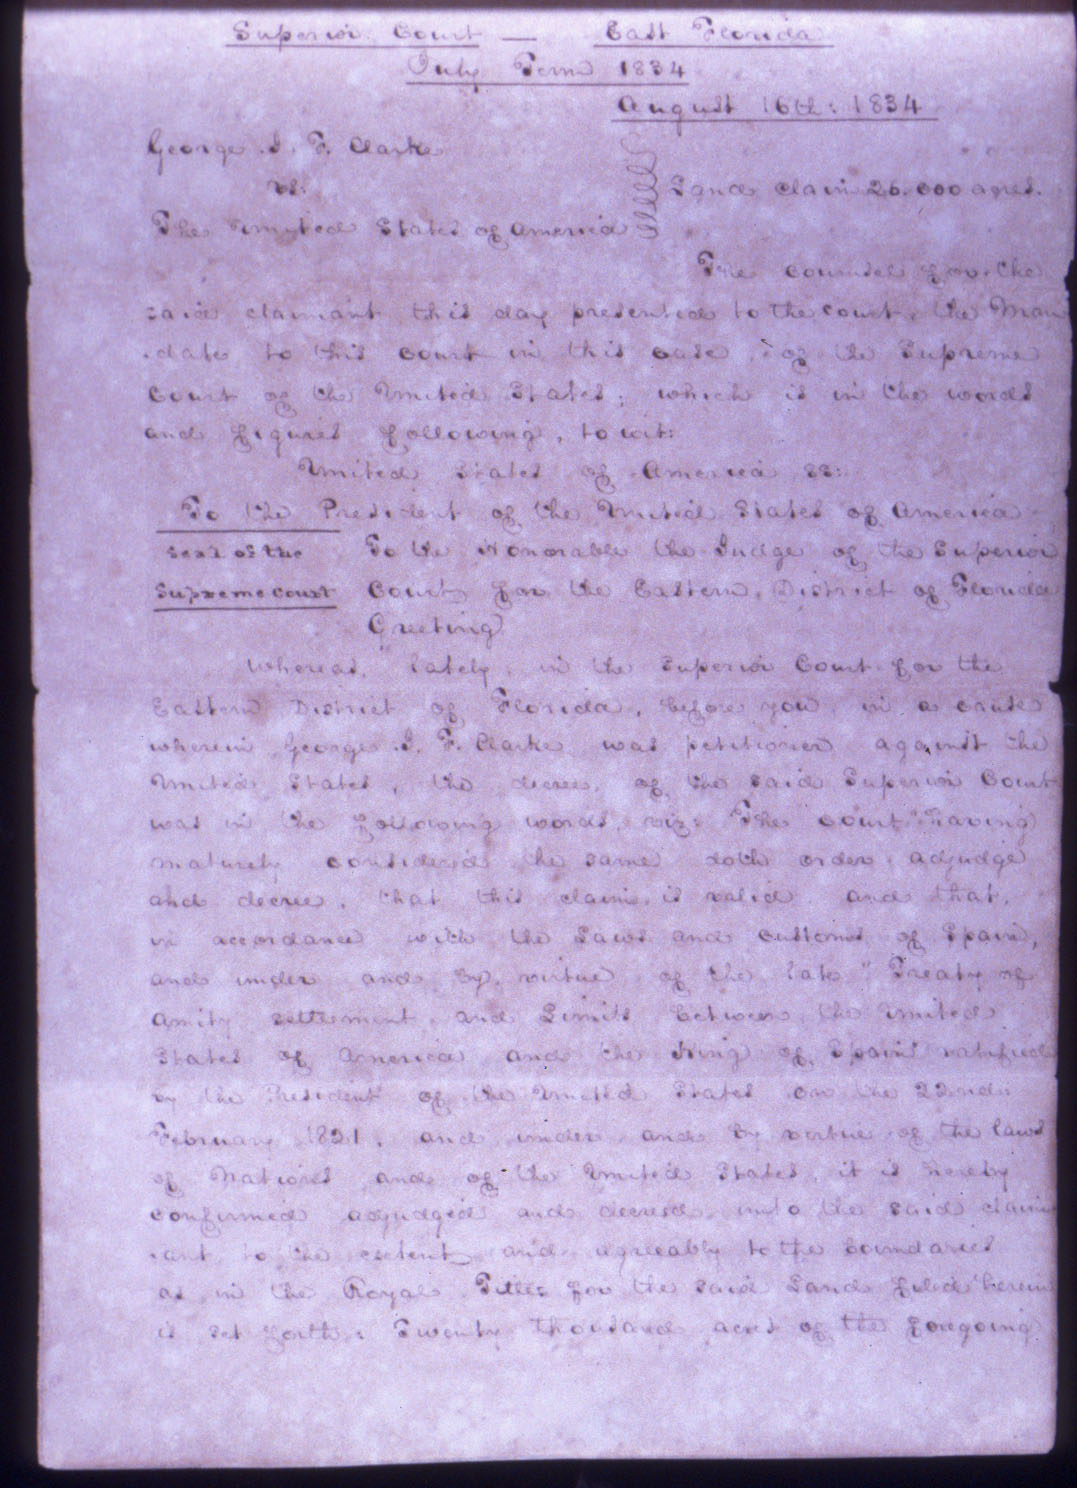 Superior Court — East Florida
July Term 1834
August 16th: 1834
George J. F. Clarke
vs.
Land claim 26.000 acres.
The United States of America
The counsel for the
said claimant this day presented to the court, the Man
-date to this court in this case, of the Supreme
Court of the United States; which is in the words
and figures following, to wit:
United States of America SS:
To the President of the United States of America
Seal of the
Supreme court
To the Honorable the Judge of the Superior
Court for the Eastern District of Florida
Greeting
Whereas, lately, in the Superior Court for the
Eastern District of Florida, before you, in a cause
wherein George J. F. Clarke was petitioner against the
United States, the decree, of the said Superior Court
was in the following words, viz: The court "Having
maturely considered the same doth order adjudge
and decree, that this claim is valid and that,
in accordance with the Laws and customs of Spain,
and under and by virtue of the late "Treaty of
Amity settlement and Limits between the United
States of America and the King of Spain" ratified
by the President of the United States on the 22nd:
February 1821, and under and by virtue of the laws
of Nations and of the United States, it is hereby
confirmed adjudged and decreed unto the said claim
-ant to the extent and agreeably to the boundaries
as in the Royal Title for the said Land filed herein
is set forth: Twenty thousand acres of the foregoing